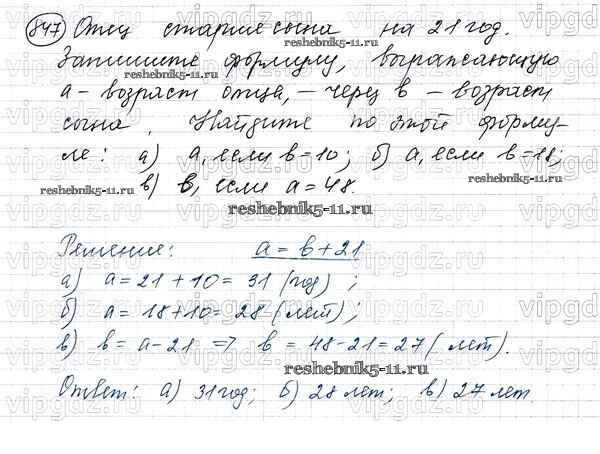 847 Отец старше сына на 21 год.
Запишите формулу, выражающую
reshebnik5-11.ru
a – возраст отца, – через b – возраст
сына. Найдите по этой форму-
ле: а) a, если b = 10; б) a, если b = 18;
reshebnik5-11.ru
в) b, если a = 48.
reshebnik5-11.ru
Решение: a = b + 21
а) a = 21 + 10 = 31 (год) ;
б) a = 18 + 10 = 28 (лет) ;
в) b = a – 21 => b = 48 – 21 = 27 (лет).
reshebnik5-11.ru
Ответ: а) 31 год; б) 28 лет; в) 27 лет.
vipgdz.ru